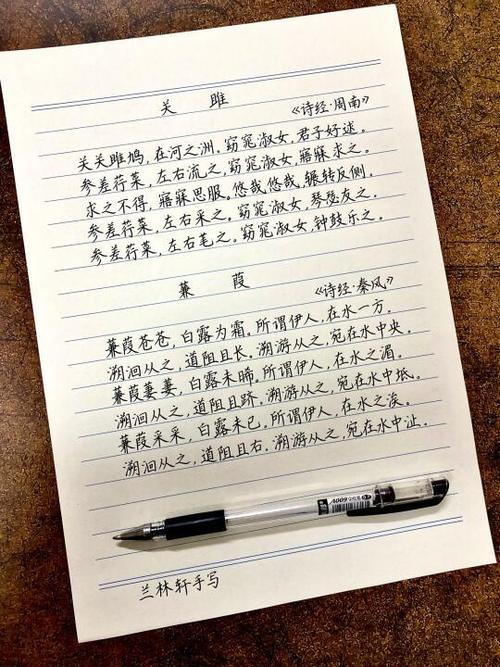 关雎
《诗经·周南》
关关雎鸠,在河之洲。窈窕淑女,君子好逑。
参差荇菜,左右流之。窈窕淑女,寤寐求之。
求之不得,寤寐思服。悠哉悠哉,辗转反侧。
参差荇菜,左右采之。窈窕淑女,琴瑟友之。
参差荇菜,左右芼之。窈窕淑女,钟鼓乐之。
蒹葭
《诗经·秦风》
蒹葭苍苍,白露为霜。所谓伊人,在水一方。
溯洄从之,道阻且长。溯游从之,宛在水中央。
蒹葭萋萋,白露未晞。所谓伊人,在水之湄。
溯洄从之,道阻且跻。溯游从之,宛在水中坻。
蒹葭采采,白露未已,所谓伊人,在水之涘。
溯洄从之,道阻且右。溯游从之,宛在水中沚。
A009
兰林轩手写